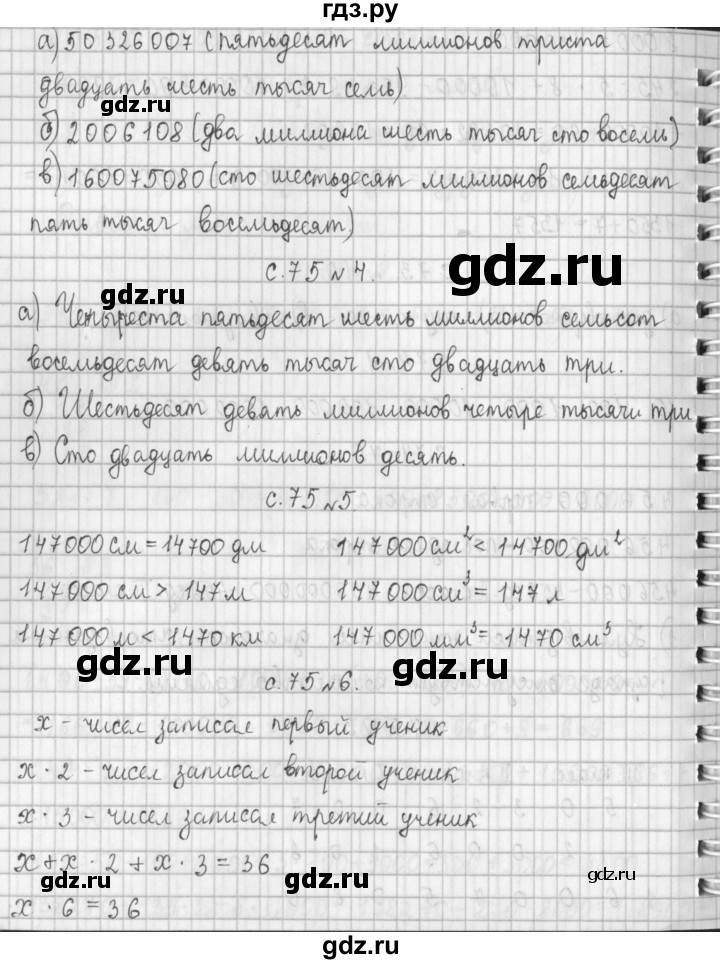 гдз.ру
а) 50 326007 (пятьдесят миллионов триста
двадцать шесть тысяч семь)
gdz.ru
б) 2006108 (два миллиона шесть тысяч сто восемь)
в) 160075080 (сто шестьдесят миллионов семьдесят
пять тысяч восемьдесят)
gdz.ru
с. 75 № 4.
gdz.ru
а) Четыреста пятьдесят шесть миллионов семьсот
восемьдесят девять тысяч сто двадцать три.
б) Шестьдесят девять миллионов четыре тысячи три
в) Сто двадцать миллионов десять.
с. 75 № 5.
147000 см = 14700 дм 147000 см² < 14700 дм²
147000 см > 147 м 147000 см³ = 147 л
147000 м < 1470 км 147 000 мм³ = 1470 см³
gdz.ru
gdz.ru
с. 75 № 6.
х - чисел записал первый ученик
х · 2 - чисел записал второй ученик
х · 3 - чисел записал третий ученик
х + х · 2 + х · 3 = 36
gdz.ru
gdz.ru
gdz.ru
х · 6 = 36
gdz.ru